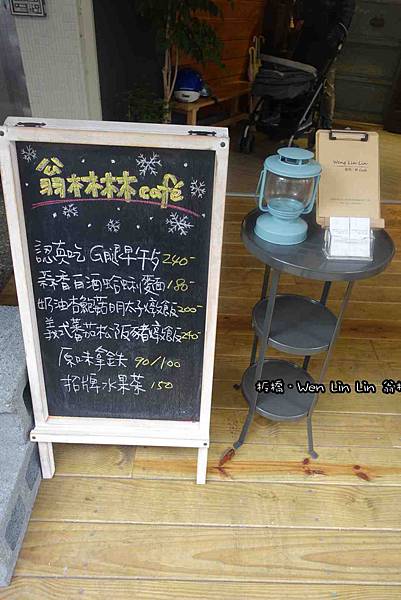 翁林林 café
認真吃 G腿早午ㄘ 240-
蒜香白酒蛤蜊麵 180-
奶油杏鮑菇明太子燉飯 200-
義式蕃茄松阪豬燉飯 240-
原味拿鐵 90/100
招牌水果茶 150
Weng Lin Lin
板橋・Wen Lin Lin 翁